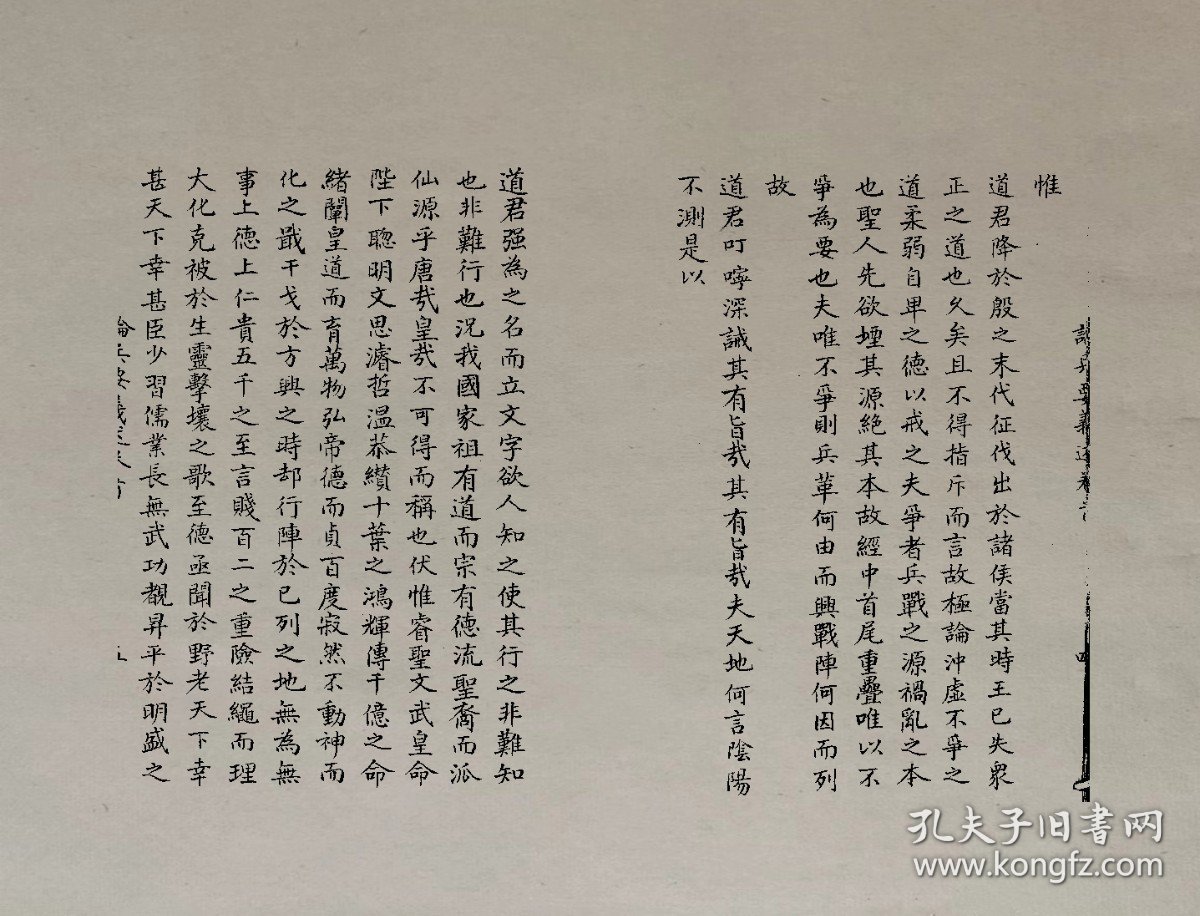 論兵要義述卷首
惟
道君降於殷之末代征伐出於諸侯當其時王已失衆
正之道也久矣且不得指斥而言故極論沖虛不爭之
道柔弱自卑之德以戒之夫爭者兵戰之源禍亂之本
也聖人先欲堙其源絕其本故經中首尾重疊唯以不
爭為要也夫唯不爭則兵革何由而興戰陣何因而列
故
道君叮嚀深誡其有旨㢤其有旨㢤夫天地何言陰陽
不測是以
道君强為之名而立文字欲人知之使其行之非難知
也非難行也況我國家祖有道而宗有德流聖裔而派
仙源乎唐㢤皇㢤不可得而稱也伏惟睿聖文武皇命
陛下聰明文思濬哲溫恭纘十葉之鴻輝傳千億之命
緒闡皇道而育萬物弘帝德而貞百度寂然不動神而
化之戢干戈於方興之時却行陣於已列之地無為無
事上德上仁貴五千之至言賤百二之重險結繩而理
大化克被於生靈擊壤之歌至德亟聞於野老天下幸
甚天下幸甚臣少習儒業長無武功覩昇平於明盛之
五
孔夫子旧書网
www.kongfz.com